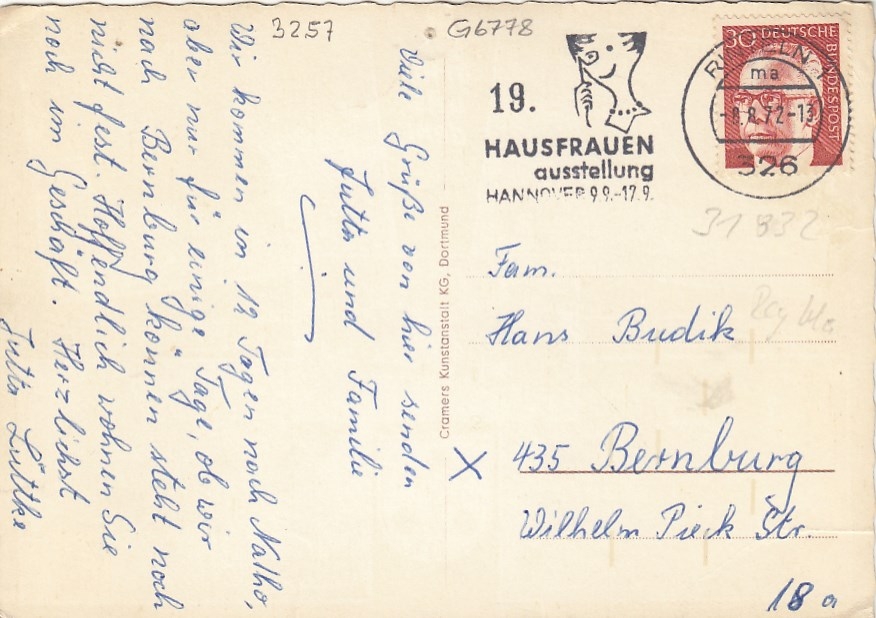 3257
G6778
Viele Grüße von hier senden
Jutta und Familie
Wir kommen in 12 Tagen nach Natho,
aber nur für einige Tage, ob wir
nach Bernburg können steht noch
nicht fest. Hoffendlich wohnen Sie
noch im Geschäft. Herzlichst
Jutta Lüttke
Cramers Kunstanstalt KG, Dortmund
19.
HAUSFRAUEN
ausstellung
HANNOVER 9.9.-17.9.
30 DEUTSCHE BUNDESPOST
ma
-8.8.72-13
326
31 832
Fam.
Hans Budik
X
435 Bernburg
Wilhelm Pieck Str.
18 a